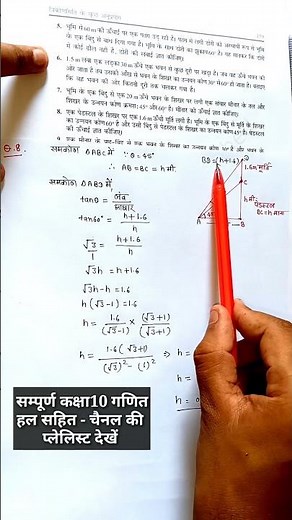 त्रिकोणमिति के कुछ अनुप्रयोग
5. भूमि से 60 m की ऊँचाई पर एक पतंग उड़ रही है। पतंग में लगी डोरी को अस्थायी रूप से भूमि
के एक बिंदु से बांध दिया गया है। भूमि के साथ डोरी का झुकाव 60° है। यह मानकर कि डोरी
में कोई ढील नहीं है, डोरी की लंबाई ज्ञात कीजिए।
6. 1.5 m लंबा एक लड़का 30 m ऊँचे एक भवन से कुछ दूरी पर खड़ा है। जब वह ऊँचे भवन की
ओर जाता है तब उसकी आँख से भवन के शिखर का उन्नयन कोण 30° से 60° हो जाता है। बताइए
कि वह भवन की ओर कितनी दूरी तक चलकर गया है।
7. भूमि के एक बिंदु से एक 20 m ऊँचे भवन के शिखर पर लगी एक संचार मीनार के तल और
शिखर के उन्नयन कोण क्रमशः 45° और 60° है। मीनार की ऊँचाई ज्ञात कीजिए।
8. एक पेडस्टल के शिखर पर एक 1.6 m ऊँची मूर्ति लगी है। भूमि के एक बिंदु से मूर्ति के शिखर
का उन्नयन कोण 60° है और उसी बिंदु से पेडस्टल के शिखर का उन्नयन कोण 45° है। पेडस्टल
की ऊँचाई ज्ञात कीजिए।
Q.8.
समकोण △ABC में ∵ θ = 45°
∴ AB = BC = h मी.
BD = (h+1.6)
D
1.6m मूर्ति
C
h मी.
पेडस्टल
BC = h माना
A
B
समकोण △ABD में
tanθ = लंब / आधार
tan60° = h+1.6 / h
√3 / 1 = h+1.6 / h
√3h = h+1.6
√3h-h = 1.6
h(√3-1) = 1.6
h = 1.6 / (√3-1) × (√3+1) / (√3+1)
h = 1.6(√3+1) / (√3)² - (1)² ⇒ h =
h =
सम्पूर्ण कक्षा10 गणित
हल सहित - चैनल की
प्लेलिस्ट देखें